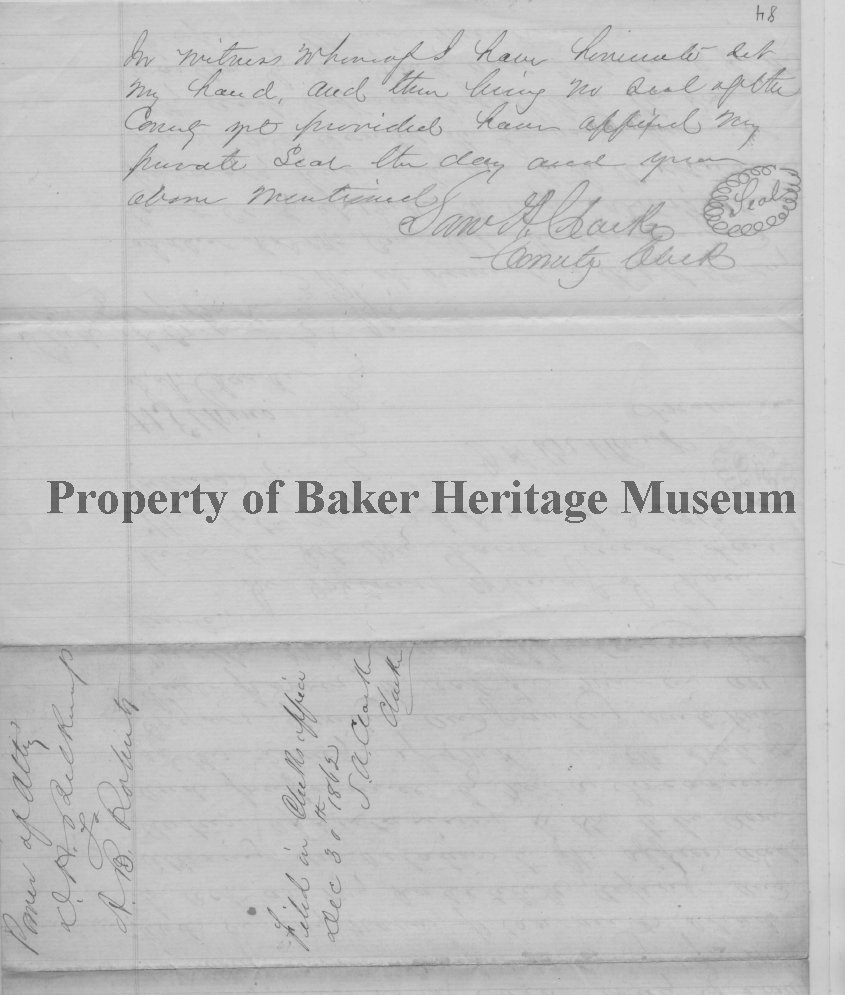 84
In Witness Whereof I have hereunto set
my hand, and there being no seal of the
County yet provided have affixed my
private Seal the day and year
above mentioned
Sam A. Clarke
Seal
County Clerk
Property of Baker Heritage Museum
Power of Atty
D. H.
To
A. B. Roberts
Filed in Clerks office
Dec 30th 1862
S A Clarke
Clerk